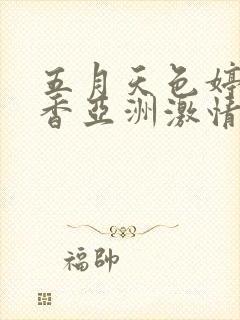 五月天色婷
香亞洲激情
福帥